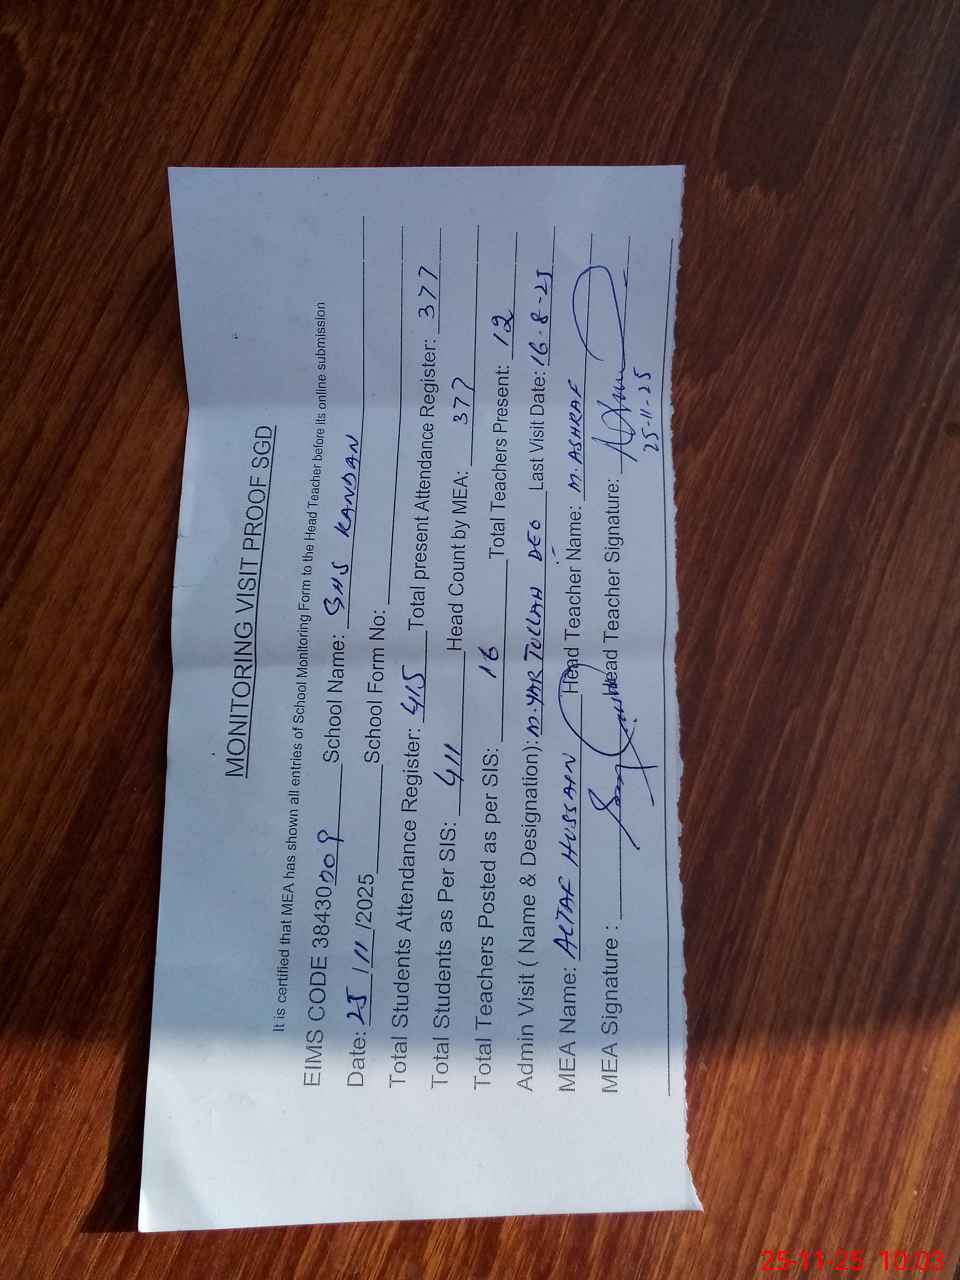 MONITORING VISIT PROOF SGD
It is certified that MEA has shown all entries of School Monitoring Form to the Head Teacher before its online submission
EIMS CODE 38430009 School Name: GHS KANDAN
Date: 25/11/2025 School Form No:
Total Students Attendance Register: 415 Total present Attendance Register: 377
Total Students as Per SIS: 411 Head Count by MEA: 377
Total Teachers Posted as per SIS: 16 Total Teachers Present: 12
Admin Visit ( Name & Designation): M. YAR TULLAH DEO Last Visit Date: 16-8-25
MEA Name: ALTAF HUSSAIN Head Teacher Name: M. ASHRAF
MEA Signature : Head Teacher Signature:
25-11-25
25-11-25 10:03